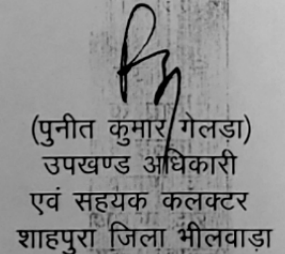 (पुनीत कुमार गेलड़ा)
उपखण्ड अधिकारी
एवं सहयक कलक्टर
शाहपुरा जिला भीलवाड़ा